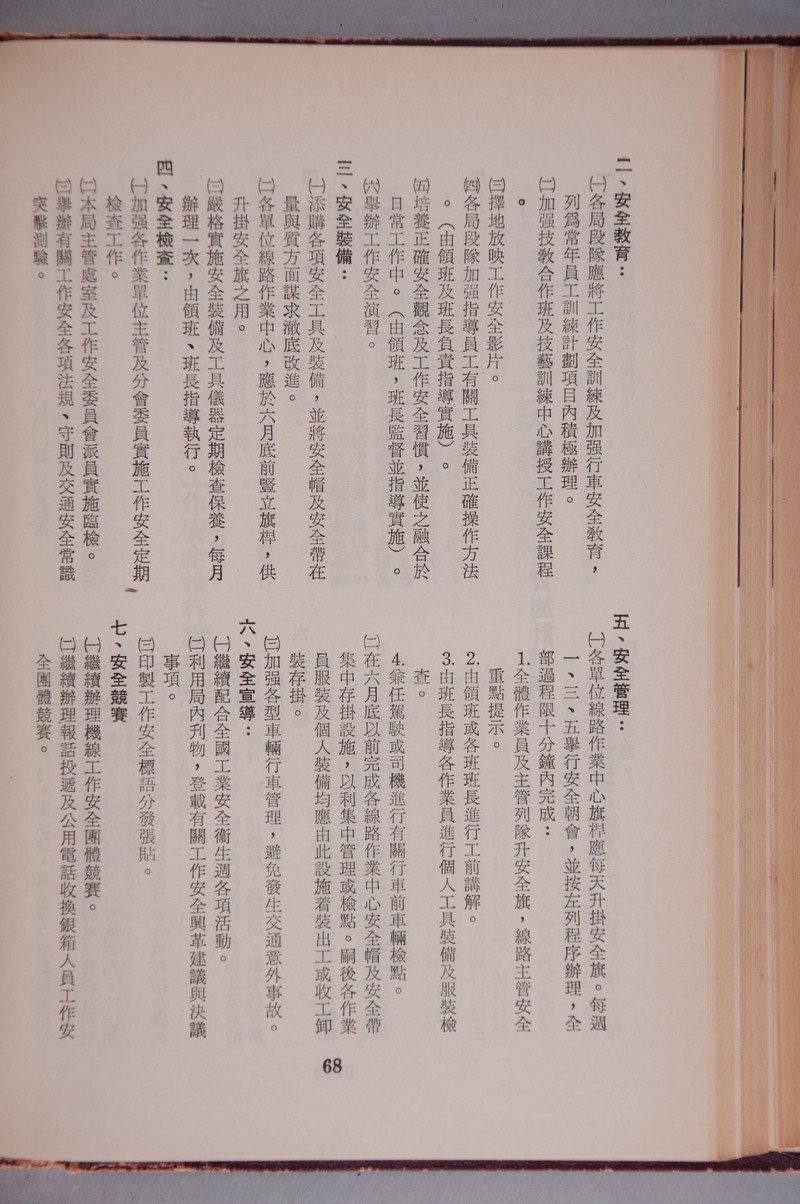 二、安全教育：
㈠各局段隊應將工作安全訓練及加强行車安全教育，
列爲常年員工訓練計劃項目內積極辦理。
㈡加强技教合作班及技藝訓練中心講授工作安全課程
。
㈢擇地放映工作安全影片。
㈣各局段隊加强指導員工有關工具裝備正確操作方法
。（由領班及班長負責指導實施）。
㈤培養正確安全觀念及工作安全習慣，並使之融合於
日常工作中。（由領班，班長監督並指導實施）。
㈥舉辦工作安全演習。
三、安全裝備：
㈠添購各項安全工具及裝備，並將安全帽及安全帶在
量與質方面謀求澈底改進。
㈡各單位線路作業中心，應於六月底前豎立旗桿，供
升掛安全旗之用。
㈢嚴格實施安全裝備及工具儀器定期檢查保養，每月
辦理一次，由領班、班長指導執行。
四、安全檢查：
㈠加强各作業單位主管及分會委員實施工作安全定期
檢查工作。
㈡本局主管處室及工作安全委員會派員實施臨檢。
㈢舉辦有關工作安全各項法規、守則及交通安全常識
突擊測驗。
五、安全管理：
㈠各單位線路作業中心旗桿應每天升掛安全旗。每週
一、三、五舉行安全朝會，並按左列程序辦理，全
部過程限十分鐘內完成：
1.全體作業員及主管列隊升安全旗，線路主管安全
重點提示。
2.由領班或各班班長進行工前講解。
3.由班長指導各作業員進行個人工具裝備及服裝檢
查。
4.兼任駕駛或司機進行有關行車前車輛檢點。
㈡在六月底以前完成各線路作業中心安全帽及安全帶
集中存掛設施，以利集中管理或檢點。嗣後各作業
員服裝及個人裝備均應由此設施着裝出工或收工卸
裝存掛。
㈢加强各型車輛行車管理，避免發生交通意外事故。
六、安全宣導：
㈠繼續配合全國工業安全衞生週各項活動。
㈡利用局內刋物，登載有關工作安全興革建議與決議
事項。
㈢印製工作安全標語分發張貼。
七、安全競賽
㈠繼續辦理機線工作安全團體競賽。
㈡繼續辦理報話投遞及公用電話收換銀箱人員工作安
全團體競賽。
68